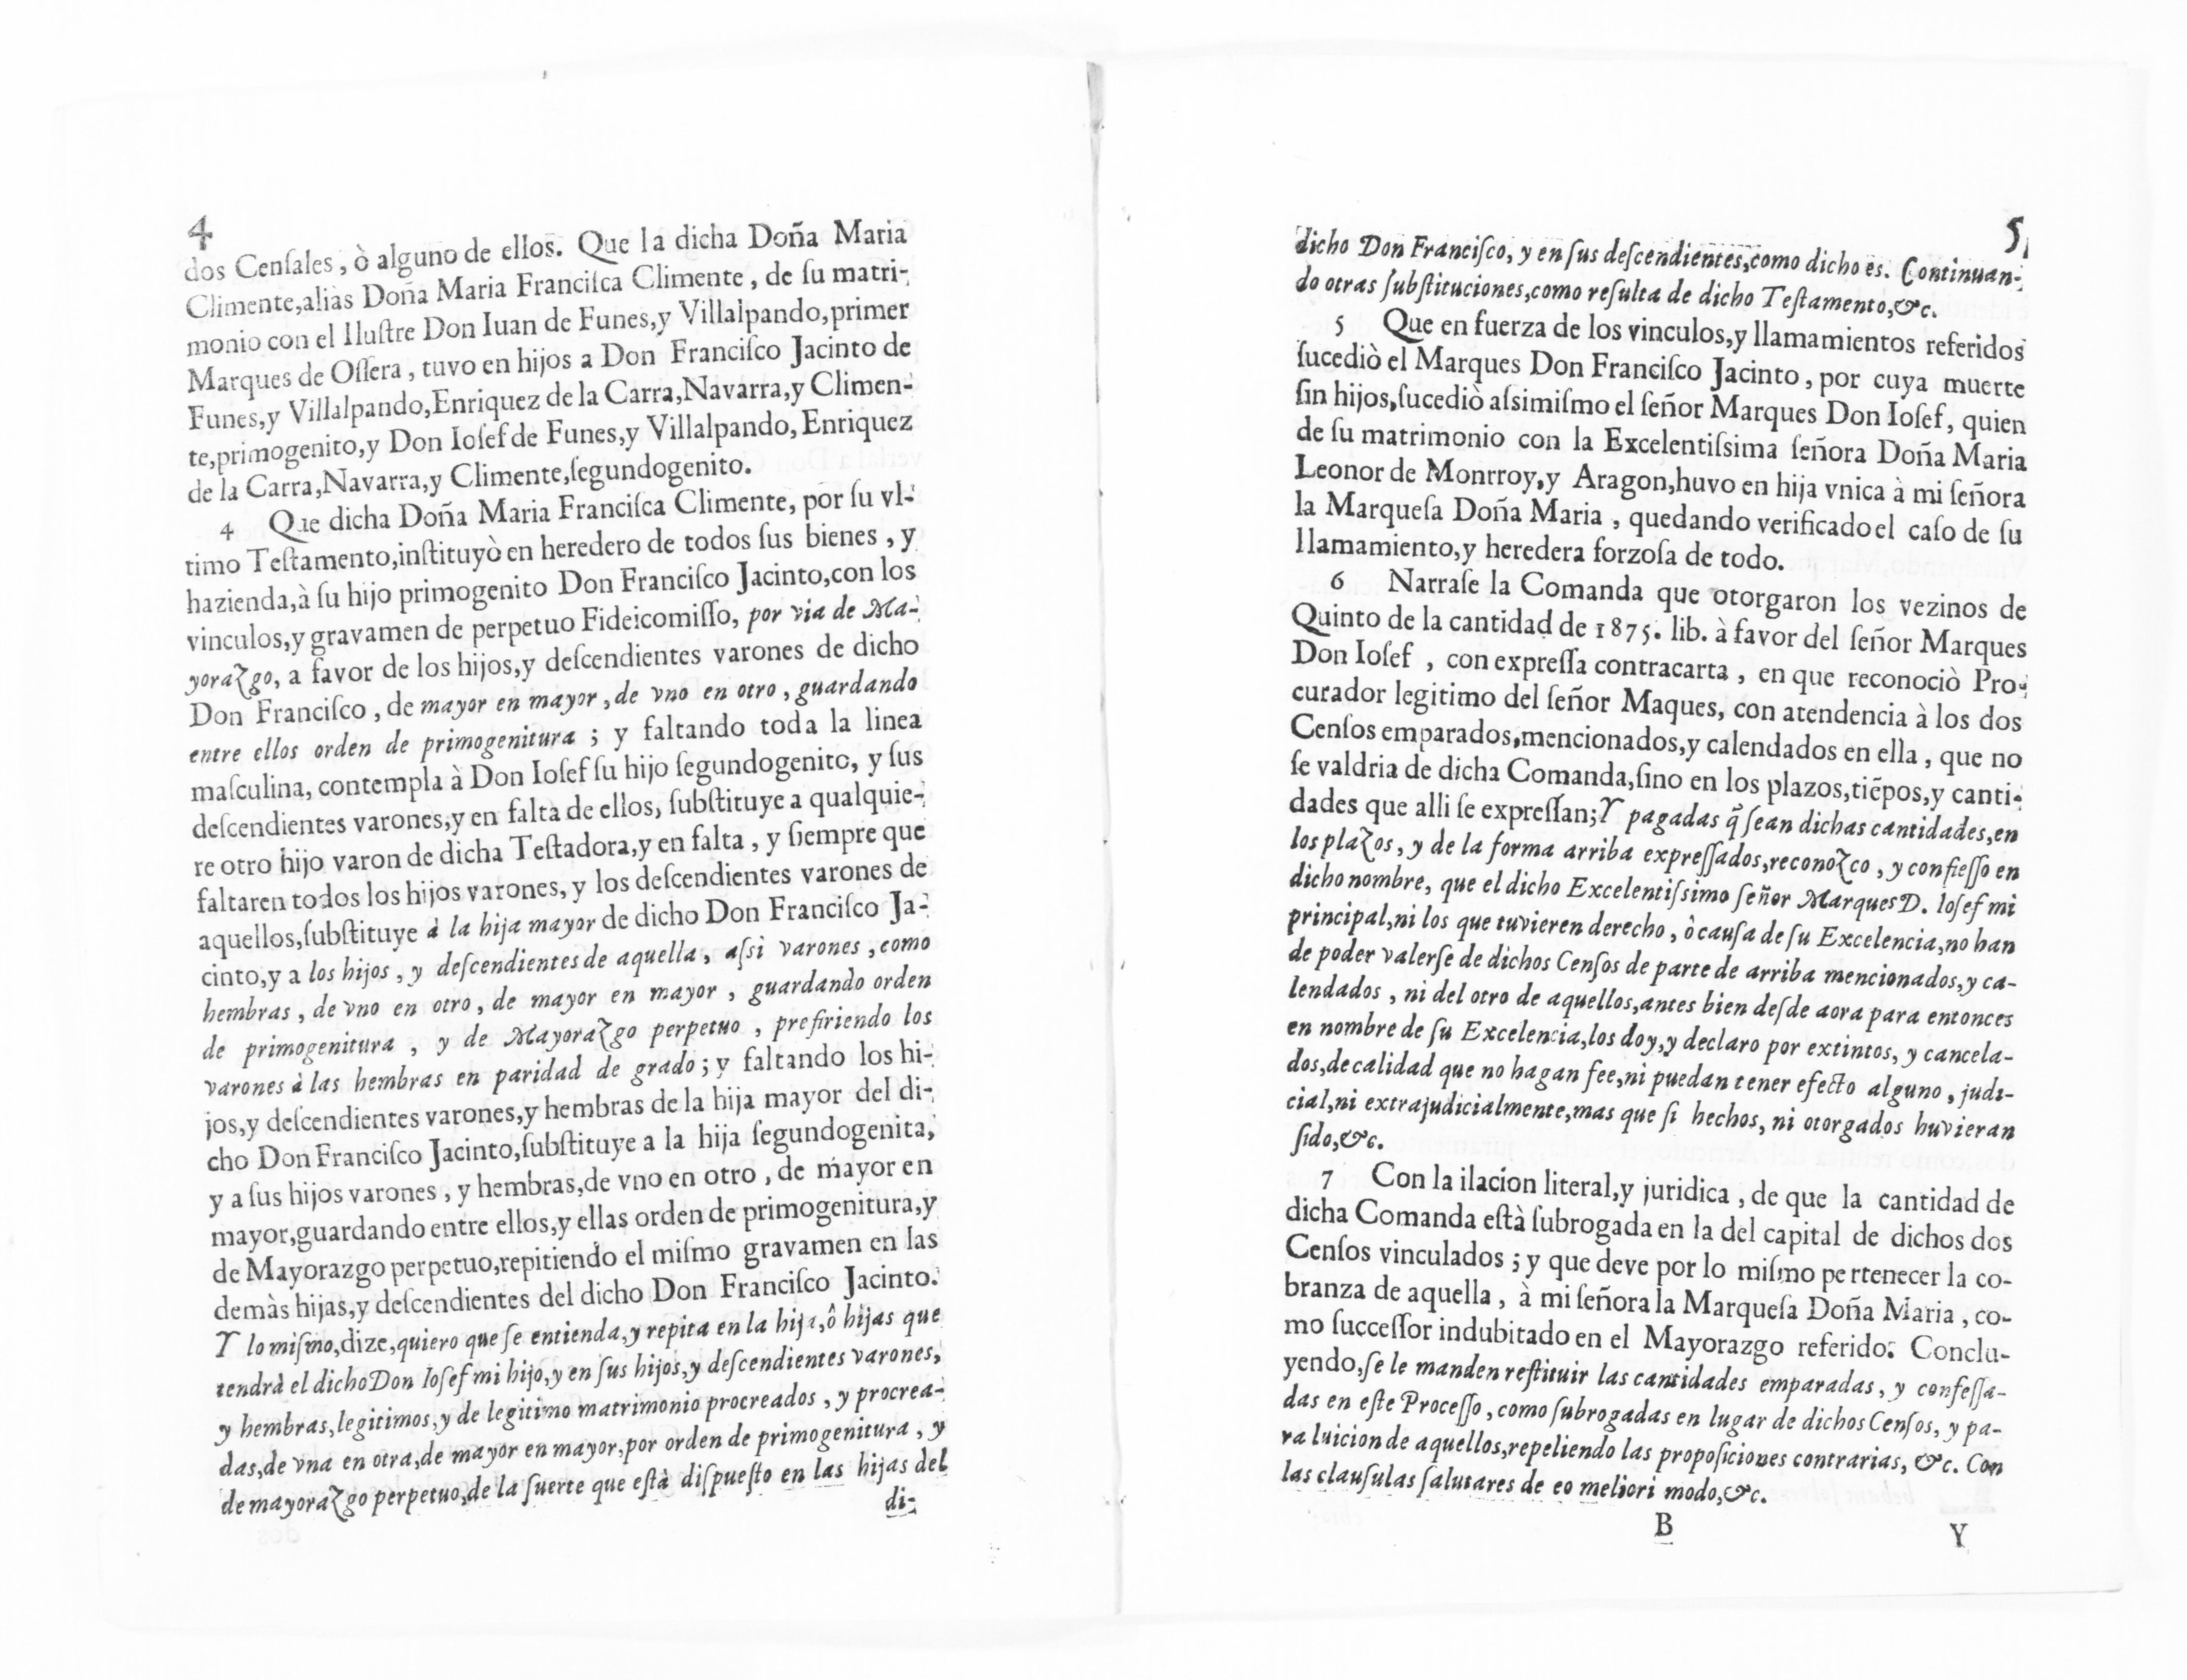 4
dos Censales, ò alguno de ellos. Que la dicha Doña Maria
Climente,alias Doña Maria Francisca Climente, de su matri-
monio con el Ilustre Don Iuan de Funes,y Villalpando,primer
Marques de Ossera, tuvo en hijos a Don Francisco Jacinto de
Funes,y Villalpando,Enriquez de la Carra,Navarra,y Climen-
te,primogenito,y Don Iosef de Funes,y Villalpando, Enriquez
de la Carra,Navarra,y Climente,segundogenito.
4 Que dicha Doña Maria Francisca Climente, por su vl-
timo Testamento,instituyò en heredero de todos sus bienes, y
hazienda,à su hijo primogenito Don Francisco Jacinto,con los
vinculos,y gravamen de perpetuo Fideicomisso, por via de Ma-
yorazgo, a favor de los hijos,y descendientes varones de dicho
Don Francisco, de mayor en mayor, de vno en otro, guardando
entre ellos orden de primogenitura; y faltando toda la linea
masculina, contempla à Don Iosef su hijo segundogenito, y sus
descendientes varones,y en falta de ellos, substituye a qualquie-
re otro hijo varon de dicha Testadora,y en falta, y siempre que
faltaren todos los hijos varones, y los descendientes varones de
aquellos,substituye à la hija mayor de dicho Don Francisco Ja-
cinto,y a los hijos, y descendientes de aquella, assi varones, como
hembras, de vno en otro, de mayor en mayor, guardando orden
de primogenitura, y de Mayorazgo perpetuo, prefiriendo los
varones à las hembras en paridad de grado; y faltando los hi-
jos,y descendientes varones,y hembras de la hija mayor del di-
cho Don Francisco Jacinto,substituye a la hija segundogenita,
y a sus hijos varones, y hembras,de vno en otro, de mayor en
mayor,guardando entre ellos,y ellas orden de primogenitura,y
de Mayorazgo perpetuo,repitiendo el mismo gravamen en las
demàs hijas,y descendientes del dicho Don Francisco Jacinto.
Y lo mismo,dize,quiero que se entienda,y repita en la hija,ô hijas que
tendrà el dicho Don Iosef mi hijo,y en sus hijos,y descendientes varones,
y hembras,legitimos,y de legitimo matrimonio procreados, y procrea-
das,de vna en otra,de mayor en mayor,por orden de primogenitura, y
de mayorazgo perpetuo,de la suerte que està dispuesto en las hijas del
di-
5
dicho Don Francisco, y en sus descendientes,como dicho es. Continuan-
do otras substituciones,como resulta de dicho Testamento,&c.
5 Que en fuerza de los vinculos,y llamamientos referidos
sucediò el Marques Don Francisco Jacinto, por cuya muerte
sin hijos,sucediò assimismo el señor Marques Don Iosef, quien
de su matrimonio con la Excelentissima señora Doña Maria
Leonor de Monrroy,y Aragon,huvo en hija vnica à mi señora
la Marquesa Doña Maria, quedando verificado el caso de su
llamamiento,y heredera forzosa de todo.
6 Narrase la Comanda que otorgaron los vezinos de
Quinto de la cantidad de 1875. lib. à favor del señor Marques
Don Iosef, con expressa contracarta, en que reconociò Pro-
curador legitimo del señor Maques, con atendencia à los dos
Censos emparados,mencionados,y calendados en ella, que no
se valdria de dicha Comanda,sino en los plazos,tiẽpos,y canti-
dades que alli se expressan;Y pagadas q̃ sean dichas cantidades,en
los plazos, y de la forma arriba expressados,reconozco, y confiesso en
dicho nombre, que el dicho Excelentissimo señor Marques D. Iosef mi
principal,ni los que tuvieren derecho, ò causa de su Excelencia,no han
de poder valerse de dichos Censos de parte de arriba mencionados,y ca-
lendados, ni del otro de aquellos,antes bien desde aora para entonces
en nombre de su Excelencia,los doy,y declaro por extintos, y cancela-
dos,de calidad que no hagan fee,ni puedan tener efecto alguno, judi-
cial,ni extrajudicialmente,mas que si hechos, ni otorgados huvieran
sido,&c.
7 Con la ilacion literal,y juridica, de que la cantidad de
dicha Comanda està subrogada en la del capital de dichos dos
Censos vinculados; y que deve por lo mismo pertenecer la co-
branza de aquella, à mi señora la Marquesa Doña Maria, co-
mo successor indubitado en el Mayorazgo referido. Conclu-
yendo,se le manden restituir las cantidades emparadas, y confessa-
das en este Processo, como subrogadas en lugar de dichos Censos, y pa-
ra luicion de aquellos,repeliendo las proposiciones contrarias, &c. Con
las clausulas salutares de eo meliori modo,&c.
B Y